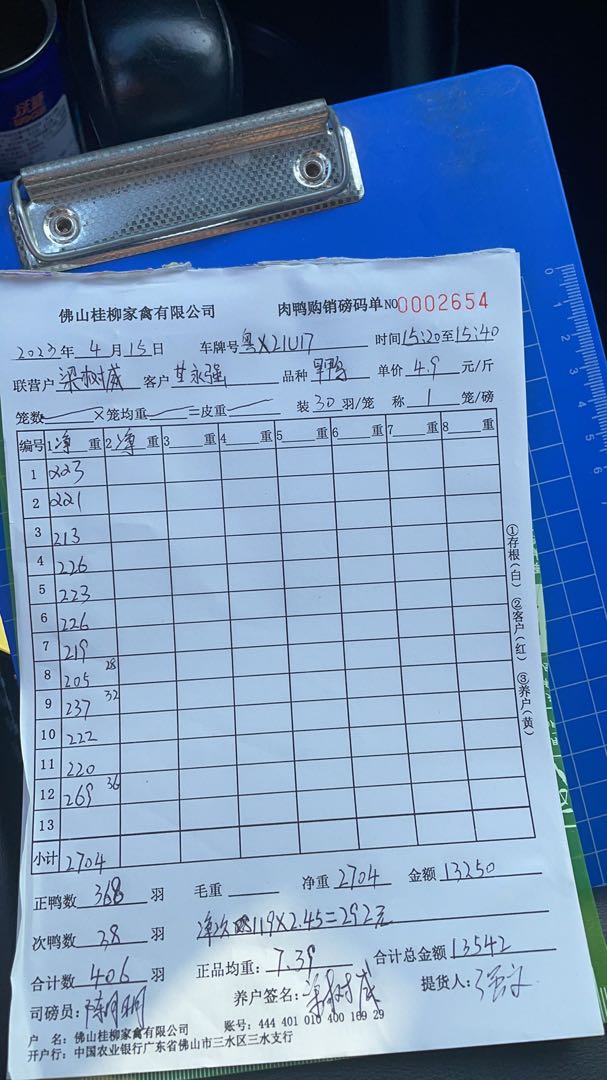 佛山桂柳家禽有限公司 肉鸭购销磅码单 NO 0002654
2023年 4月 15日 车牌号 粤X21U17 时间 15:20至15:40
联营户 梁树威 客户 甘永强 品种 单价 4.9 元/斤
笼数 ×笼均重 =皮重 装 30 羽/笼 称 1 笼/磅
编号 1净重 2净重 3 重 4 重 5 重 6 重 7 重 8 重
1 223
2 221
3 213
4 226
5 223
6 226
7 219
8 205 28
9 237 32
10 222
11 220
12 269 36
13
小计 2704
正鸭数 368 羽 毛重 净重 2704 金额 13250
次鸭数 38 羽 净次 119×2.45=292元
合计数 406 羽 正品均重: 7.39 合计总金额 13542
司磅员: 养户签名: 梁树威 提货人:
户 名: 佛山桂柳家禽有限公司 账号: 444 401 010 400 169 29
开户行: 中国农业银行广东省佛山市三水区三水支行
①存根(白) ②客户(红) ③养户(黄)